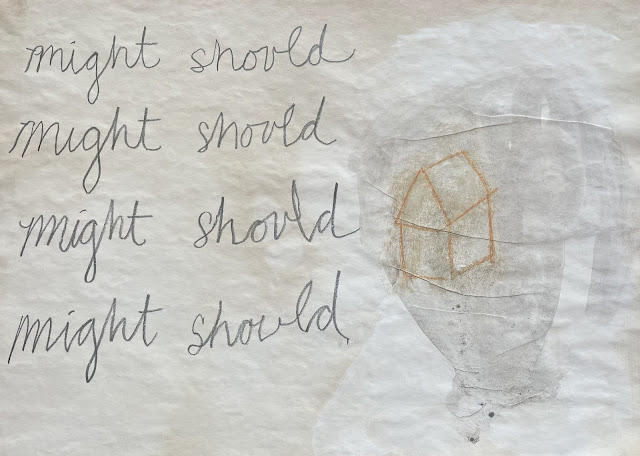 might should
might should
might should
might should